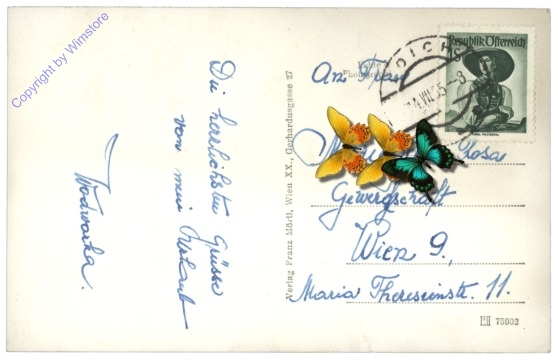 Copyright by Wimstore
Die herrlichsten Grüsse
von mein Urlaub
Verlag Franz Mörtl, Wien XX., Gerhardusgasse 27
Republik Österreich
An Frau
Rosa
Gewerkschaft
Wien 9,
Maria Theresienstr. 11.
75902